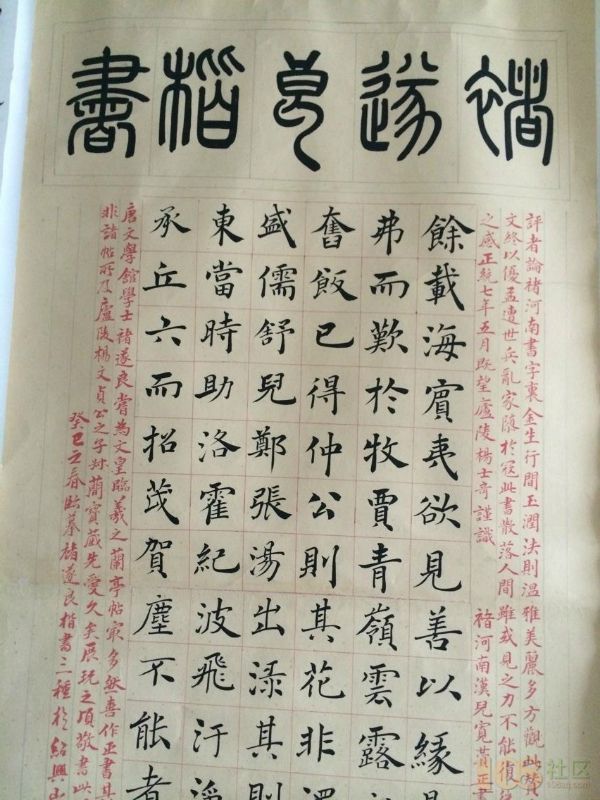 褚遂良楷書
評者論褚河南書字裏金生行間玉潤法則溫雅美麗多方觀此贊
文終以優孟遭世兵亂家於寇此書散落人間雖或見之力不能復
之感正統七年五月既望廬陵楊士奇謹識 褚河南漢兒寬贊正書
餘載海賓夷欲見善以緣
弗而歎於牧賈青嶺雲露
奮飯已得仲公則其花非
盛儒舒兒鄭張湯出滌其則
東當時助洛霍紀波飛汗淨
承丘六而招茂賀塵不能者
唐文學館學士褚遂良嘗為文皇臨羲之蘭亭帖最多然喜作正書其
非諸帖所及廬陵楊文貞公之子簡寶藏先愛久矣展玩之頃敬書此
癸巳之春臨摹褚遂良楷書二種於紹興山
社区